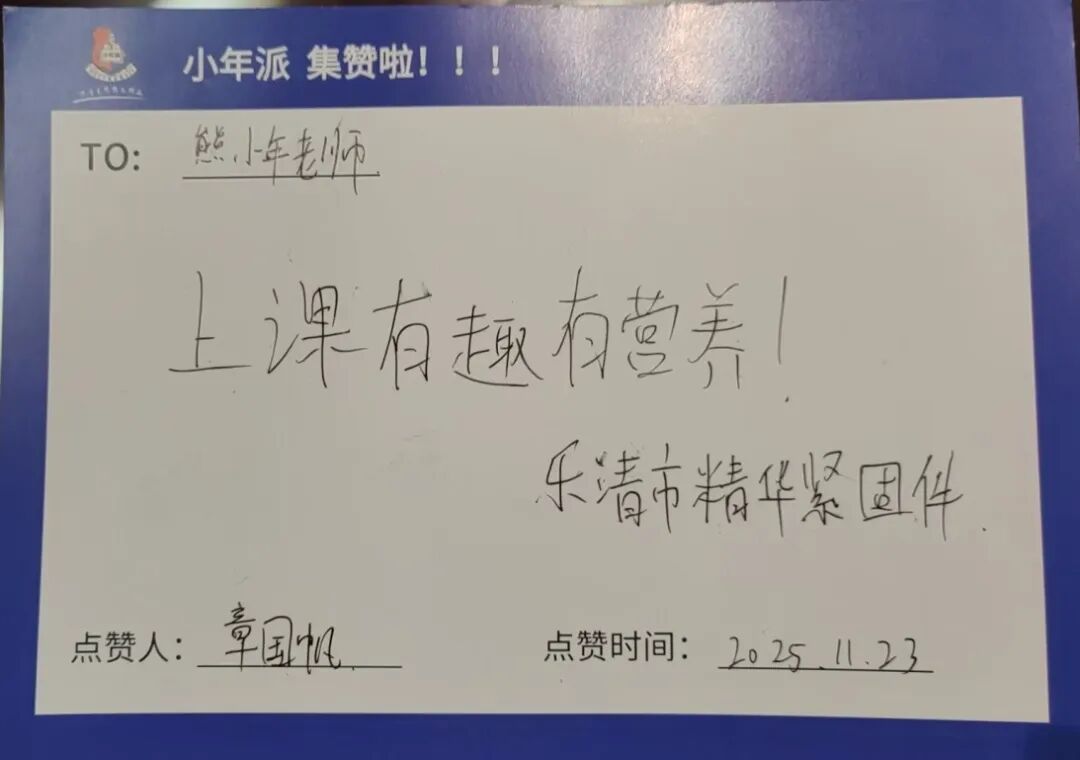 小年派 集赞啦！！！
TO: 熊小年老师
上课有趣有营养！
乐清市精华紧固件.
点赞人： 章国帆.
点赞时间： 2025.11.23